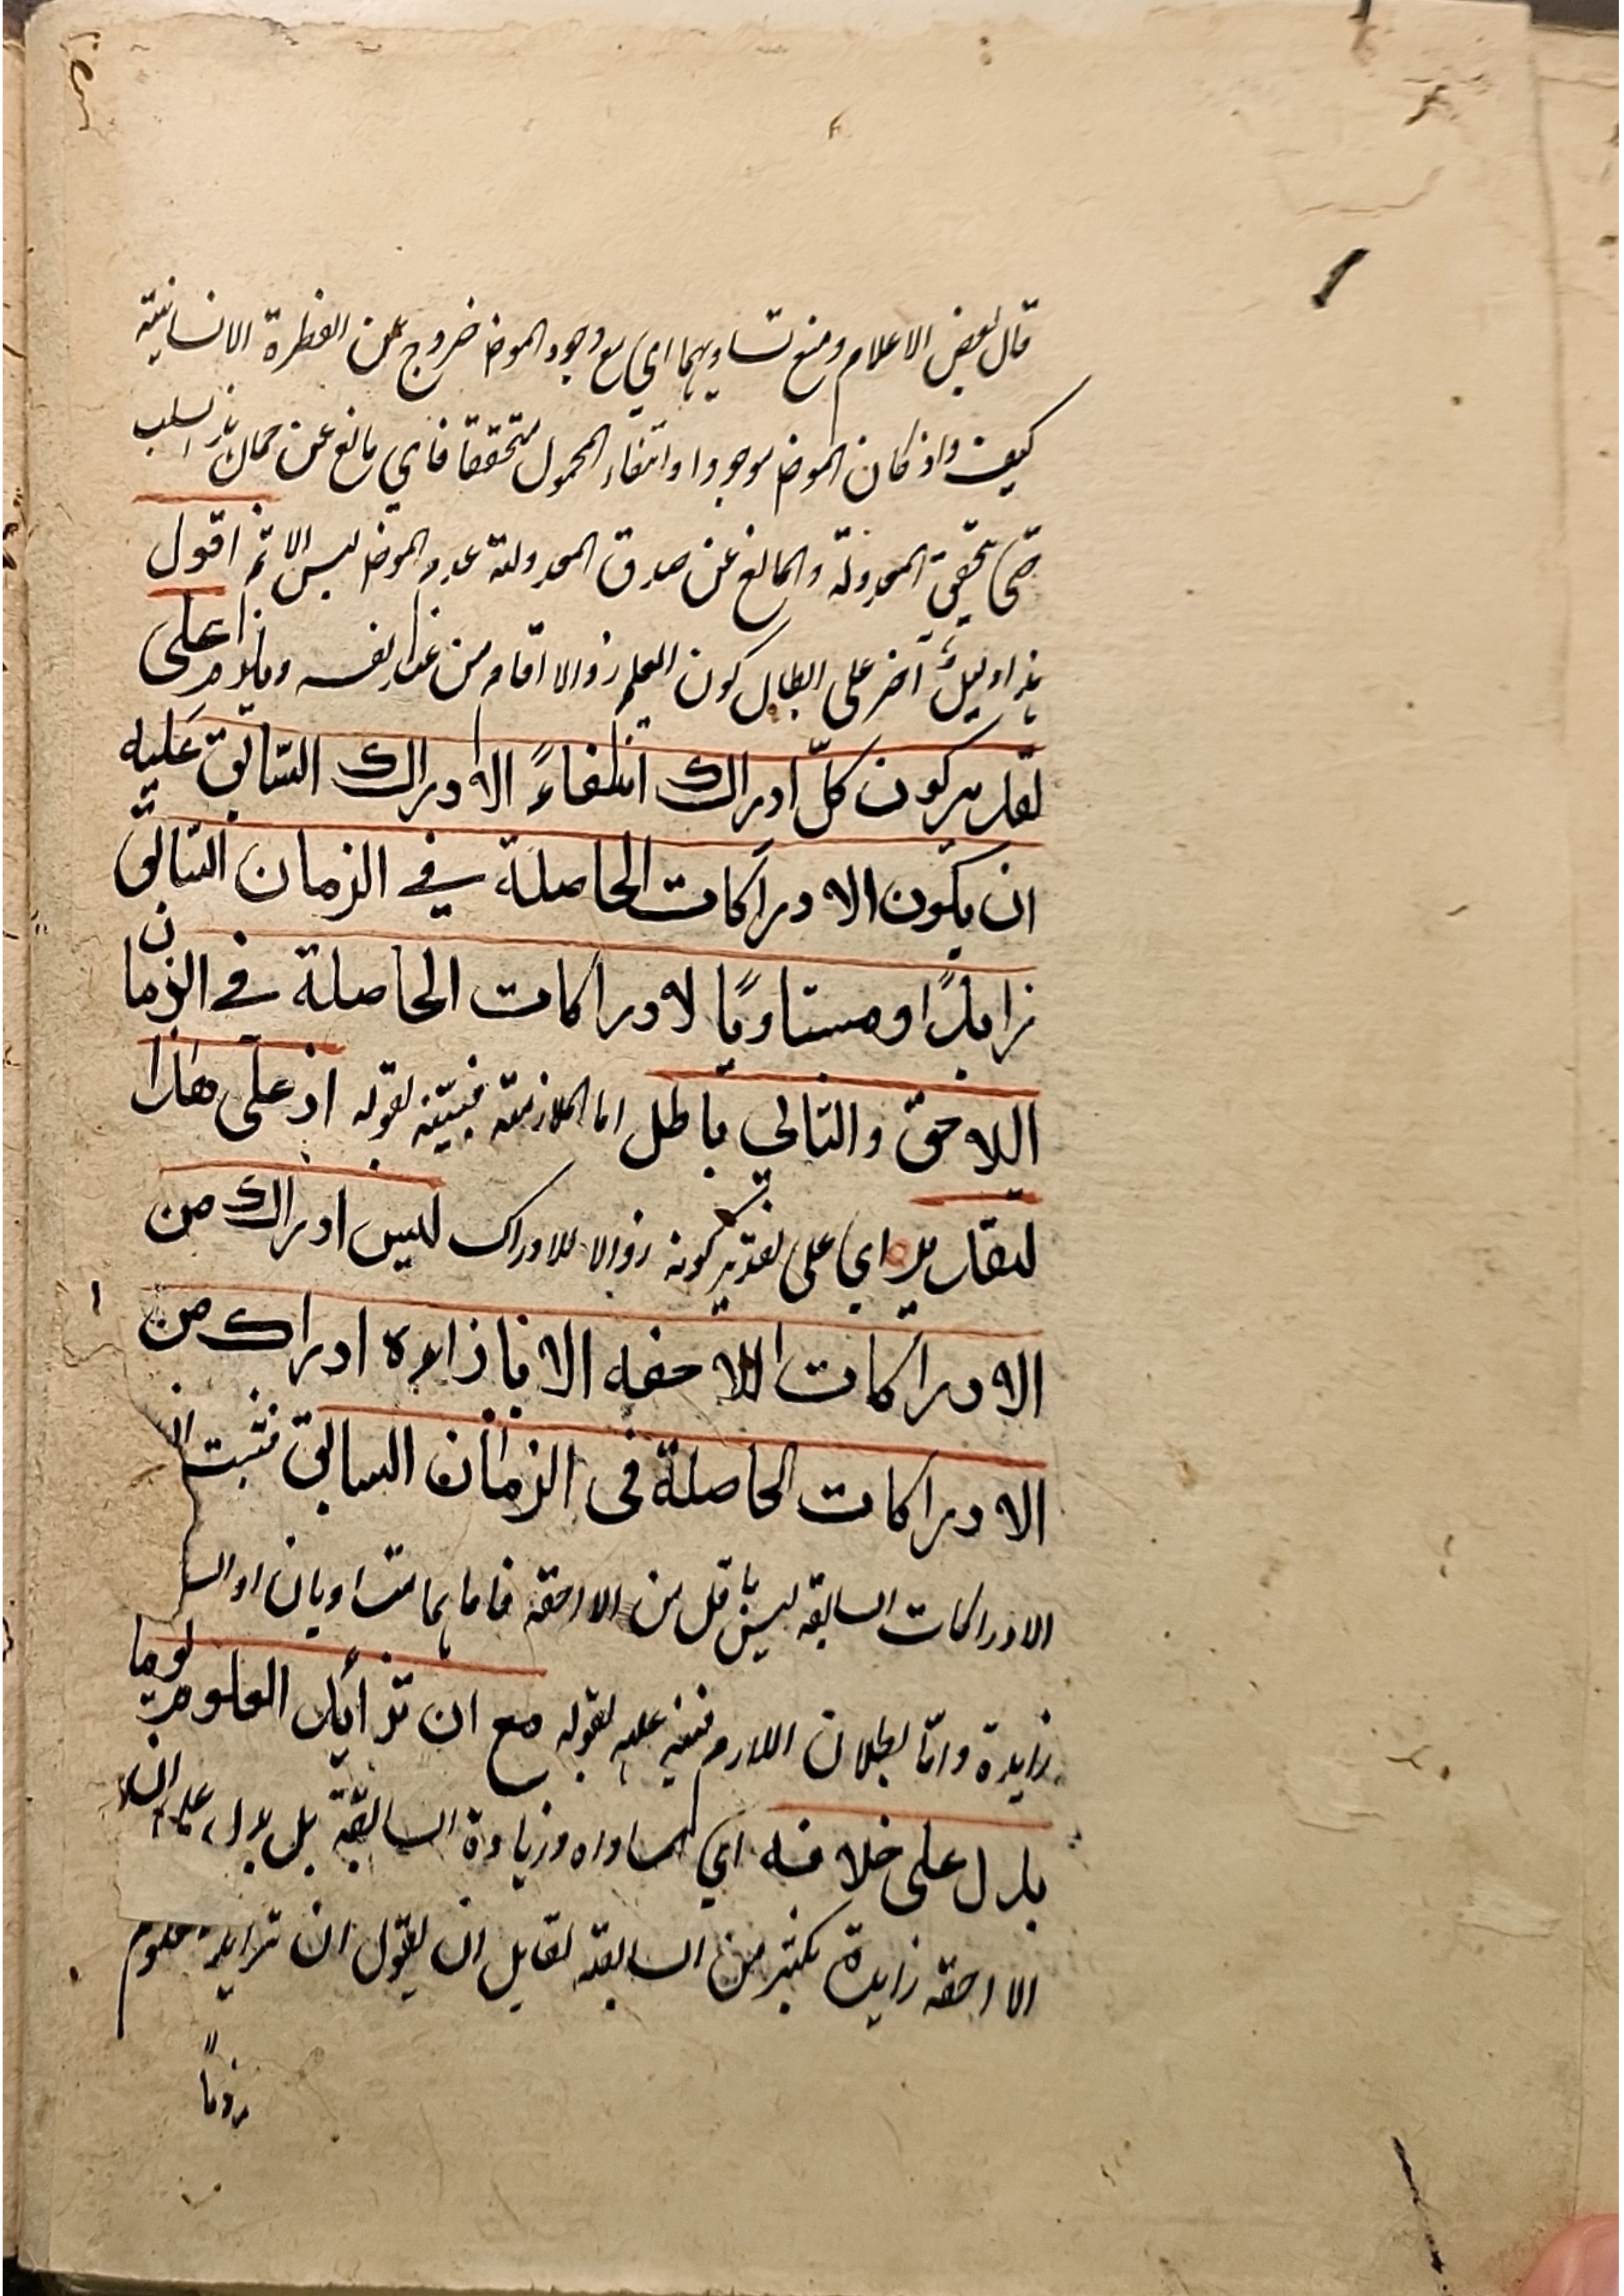 قال بعض الاعلام ومنع تساويهما اي مع وجود الموض خروج عن الفطرة الانسانية
كيف واذ كان الموض موجودا وانتفاء المحمول متحققا فاي مانع عن حمل السلب
حتى تحقق المعدولة والمانع عن صدق المعدولة عدم الموض ليس الا ثم اقول
هذا دليل آخر على ابطال كون العلم زوالا اقام من عند نفسه ويلزم على
تقدير كون كلّ ادراك انتفاءً الادراك السّابق عليه
ان يكون الادراكات الحاصلة في الزمان السّابق
زايدًا او مساويًا لادراكات الحاصلة في الزمان
اللاحق والتالي باطل اما الملازمة فبيّنه بقوله اذ على هذا
التقدير اي على تقدير كونه زوالا للادراك ليس ادراك من
الادراكات اللاحقه الا بازاءه ادراك من
الادراكات الحاصلة فى الزمان السابق فثبت ان
الادراكات السابقه ليس باقل من الاحقه فاما هما متساويان او
زايدة وامّا بطلان اللازم فنبه عليه بقوله مع ان تزايد العلوم يوما
يدل على خلافه اي المساواه وزيادة السابقة بل يدل على ان
الاحقه زايدة بكثير من السابقة لقايل ان يقول ان تزايد العلوم
يوما